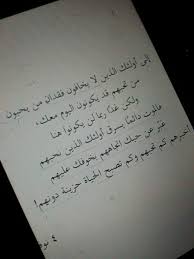 إلى أولئك الذين لا يخافون فقدان من يحبون
من تحبهم قد يكونون اليوم معك،
ولكن غدًا ربما لن يكونوا هنا
فالموت دائمًا يسرق أولئك الذين نحبهم
عبّر عن حبك اتجاههم بخوفك عليهم
أخبرهم كم تحبهم وكم تصبح الحياة حزينة دونهم!